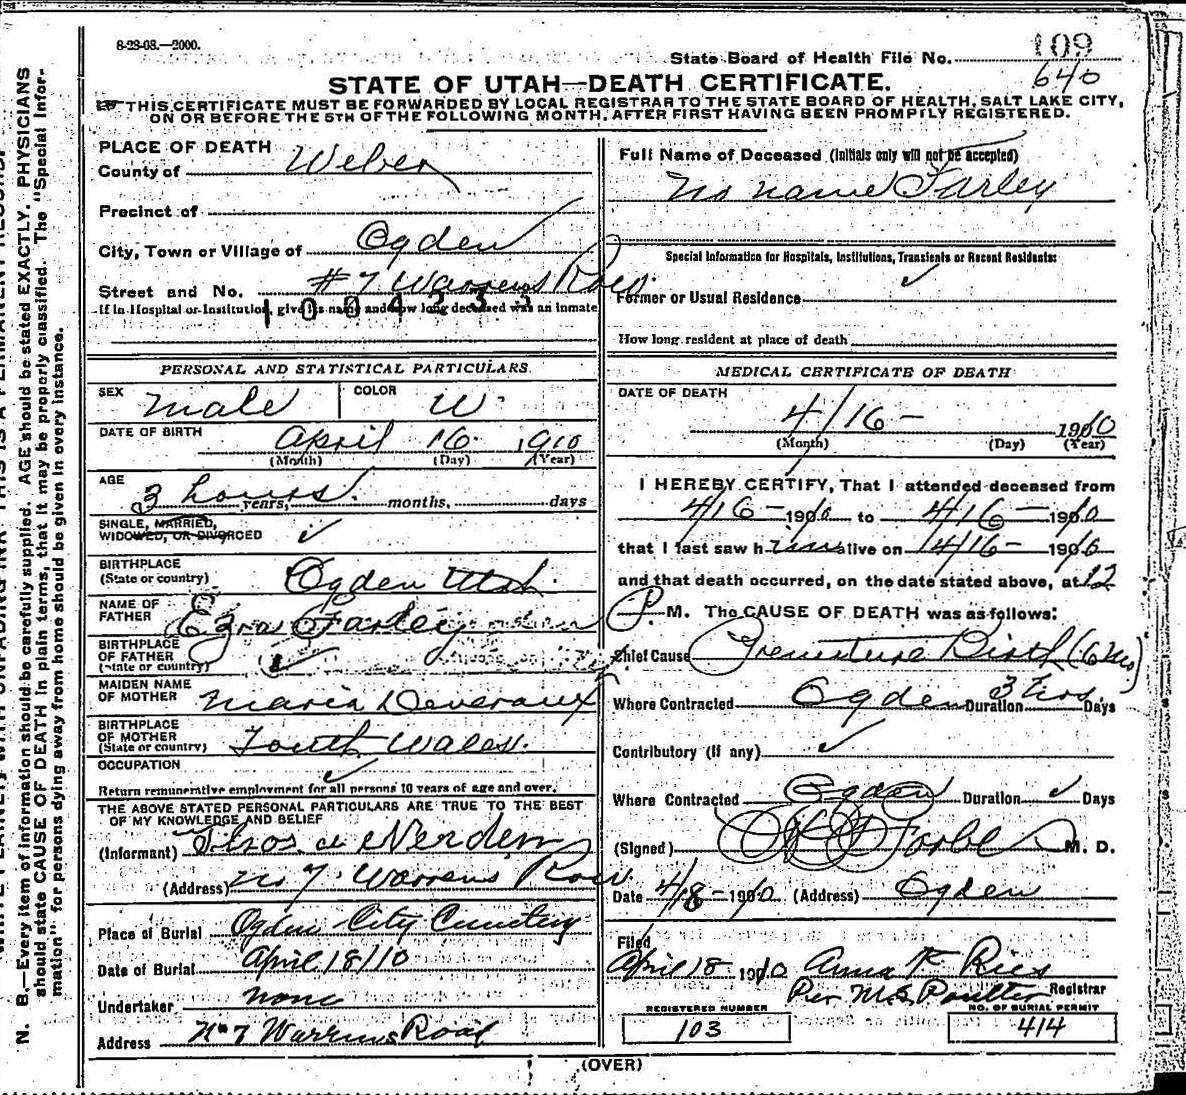 8-28-08.—2000.
State Board of Health File No. 109
640
STATE OF UTAH—DEATH CERTIFICATE.
THIS CERTIFICATE MUST BE FORWARDED BY LOCAL REGISTRAR TO THE STATE BOARD OF HEALTH, SALT LAKE CITY,
ON OR BEFORE THE 5TH OF THE FOLLOWING MONTH, AFTER FIRST HAVING BEEN PROMPTLY REGISTERED.
PLACE OF DEATH
County of Weber
Precinct of
City, Town or Village of Ogden
Street and No. #7 Warrens Row.
1004233
If in Hospital or Institution, give its name and how long deceased was an inmate
PERSONAL AND STATISTICAL PARTICULARS
SEX Male COLOR W.
DATE OF BIRTH April 16. 1910
(Month) (Day) (Year)
AGE
3 hours. years, months, days
SINGLE, MARRIED,
WIDOWED, OR DIVORCED ✓
BIRTHPLACE
(State or country) Ogden Utah.
NAME OF
FATHER Ezra Farley
BIRTHPLACE
OF FATHER
(State or country) ✓
MAIDEN NAME
OF MOTHER Maria Deveraux
BIRTHPLACE
OF MOTHER
(State or country) South Wales.
OCCUPATION ✓
Return remunerative employment for all persons 10 years of age and over.
THE ABOVE STATED PERSONAL PARTICULARS ARE TRUE TO THE BEST
OF MY KNOWLEDGE AND BELIEF
(Informant) Thos.
(Address) No 7. Warrens Row.
Place of Burial Ogden City Cemetery
Date of Burial April 18/10
Undertaker none
Address No 7 Warrens Road
Full Name of Deceased (Initials only will not be accepted)
No name Farley
Special Information for Hospitals, Institutions, Transients or Recent Residents:
✓
Former or Usual Residence
How long resident at place of death
MEDICAL CERTIFICATE OF DEATH
DATE OF DEATH
4/16— 1910
(Month) (Day) (Year)
I HEREBY CERTIFY, That I attended deceased from
4/16— 1910 to 4/16— 1910
that I last saw him alive on 4/16— 1910
and that death occurred, on the date stated above, at 12
P. M. The CAUSE OF DEATH was as follows:
Chief Cause Premature Birth (6 Mo)
Where Contracted Ogden Duration 3 Hrs. Days
Contributory (if any) ✓
Where Contracted Ogden Duration ✓ Days
(Signed) M. D.
Date 4/18— 1910 (Address) Ogden
Filed
April 18 1910 Anna K Ries
Registrar
Per M.S. Poulter
REGISTERED NUMBER
103
NO. OF BURIAL PERMIT
414
(OVER)
N. B.—Every item of information should be carefully supplied. AGE should be stated EXACTLY. PHYSICIANS
should state CAUSE OF DEATH in plain terms, that it may be properly classified. The "Special Infor-
mation" for persons dying away from home should be given in every instance.